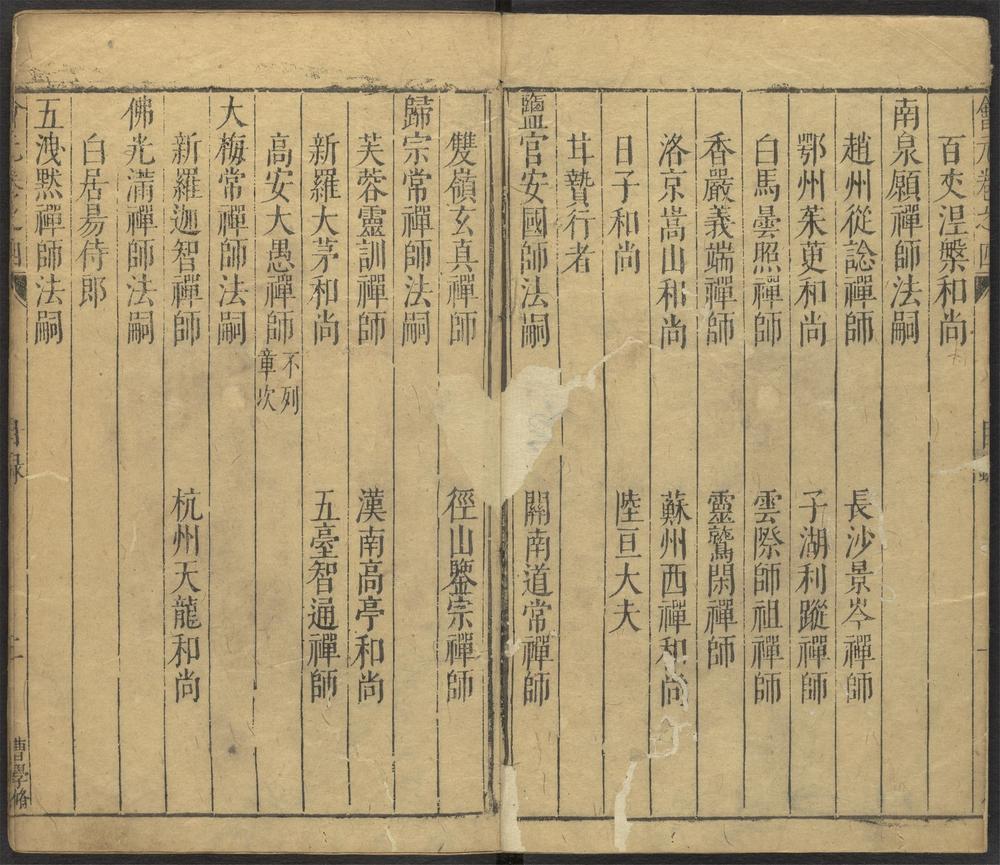 會元卷之四
目錄
百丈涅槃和尚
南泉願禪師法嗣
趙州從諗禪師 長沙景岑禪師
鄂州茱萸和尚 子湖利蹤禪師
白馬曇照禪師 雲際師祖禪師
香嚴義端禪師 靈鷲閑禪師
洛京嵩山和尚 蘇州西禪和尚
日子和尚 陸亘大夫
甘贄行者
鹽官安國師法嗣 關南道常禪師
雙嶺玄真禪師 徑山鑒宗禪師
歸宗常禪師法嗣
芙蓉靈訓禪師 漢南高亭和尚
新羅大茅和尚 五臺智通禪師
高安大愚禪師 不列章次
大梅常禪師法嗣
新羅迦智禪師 杭州天龍和尚
佛光滿禪師法嗣
白居易侍郎
五洩默禪師法嗣
會元卷之四
目錄
二
曹學脩